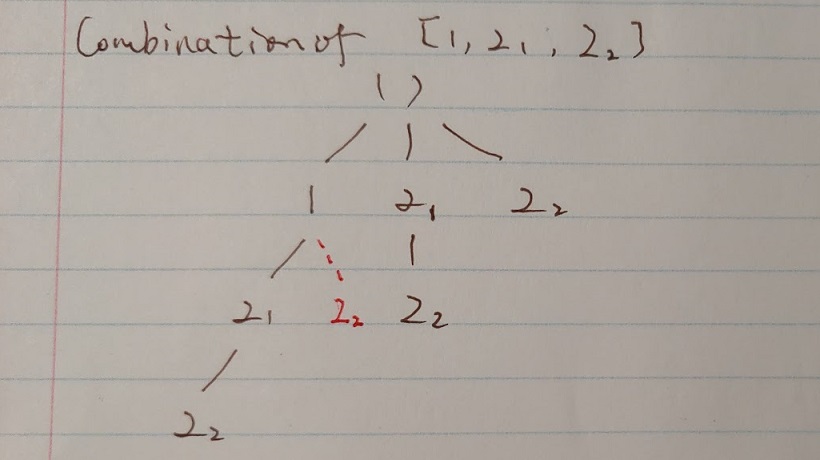 Combination of [1, 2₁, 2₂]
( )
1 2₁ 2₂
2₁ 2₂ 2₂
2₂